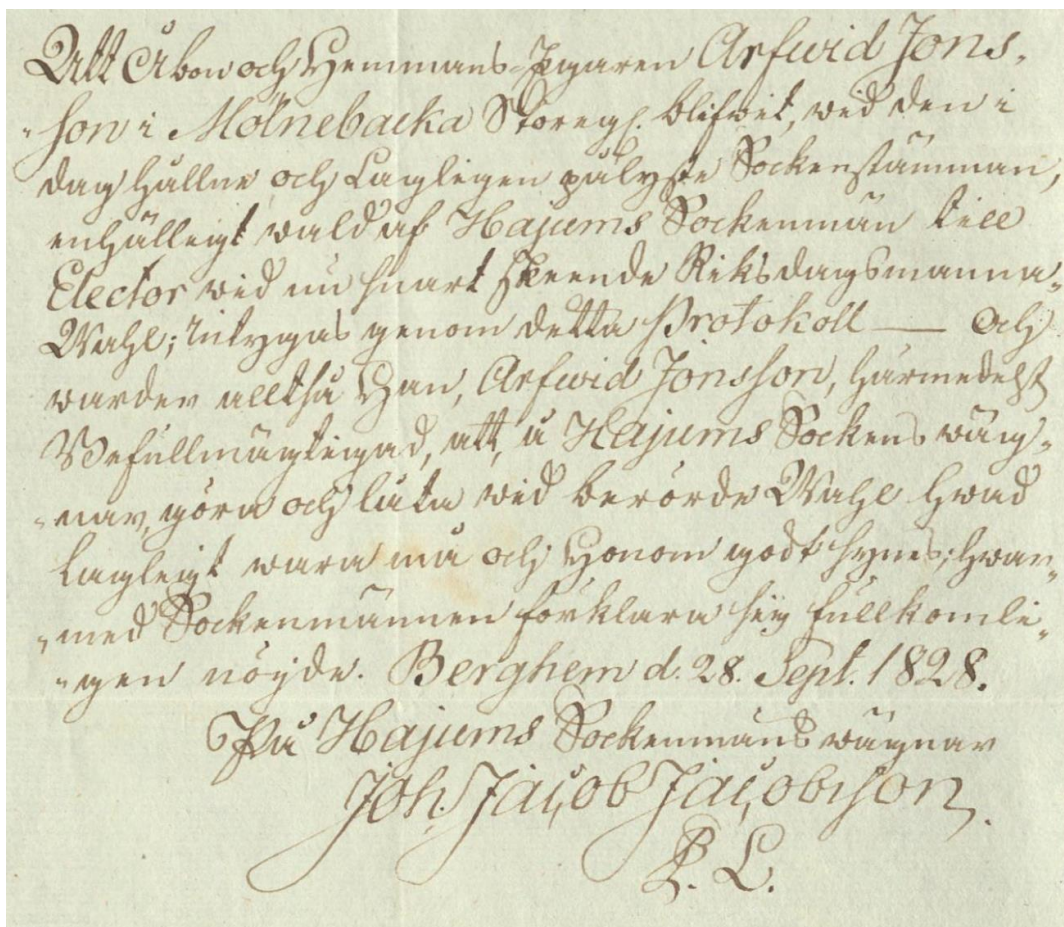 Att Åbon och Hemmans-Ägaren Arfwid Jons-
-son i Mölnebacka Storeg. blifwit, wid den i
dag hållne och Lagligen pålyste Sockenstämman,
enhälligt wald af Hajums Sockenmän till
Elector wid nu snart skeende Riksdagsmanna-
Wahl; intygas genom detta Protokoll — och
warder alltså Han, Arfwid Jonsson, härmedelst
Befullmägtigad, att, å Hajums Sockens wäg-
-nar, göra och låta wid berörde Wahl hwad
Lagligt wara må och Honom godt synes; hwar-
-med Sockenmännen förklara sig fullkomli-
-gen nöjde. Berghem d. 28. Sept. 1828.
På Hajums Sockenmäns wägnar
Joh. Jacob Jacobsson.
P. L.